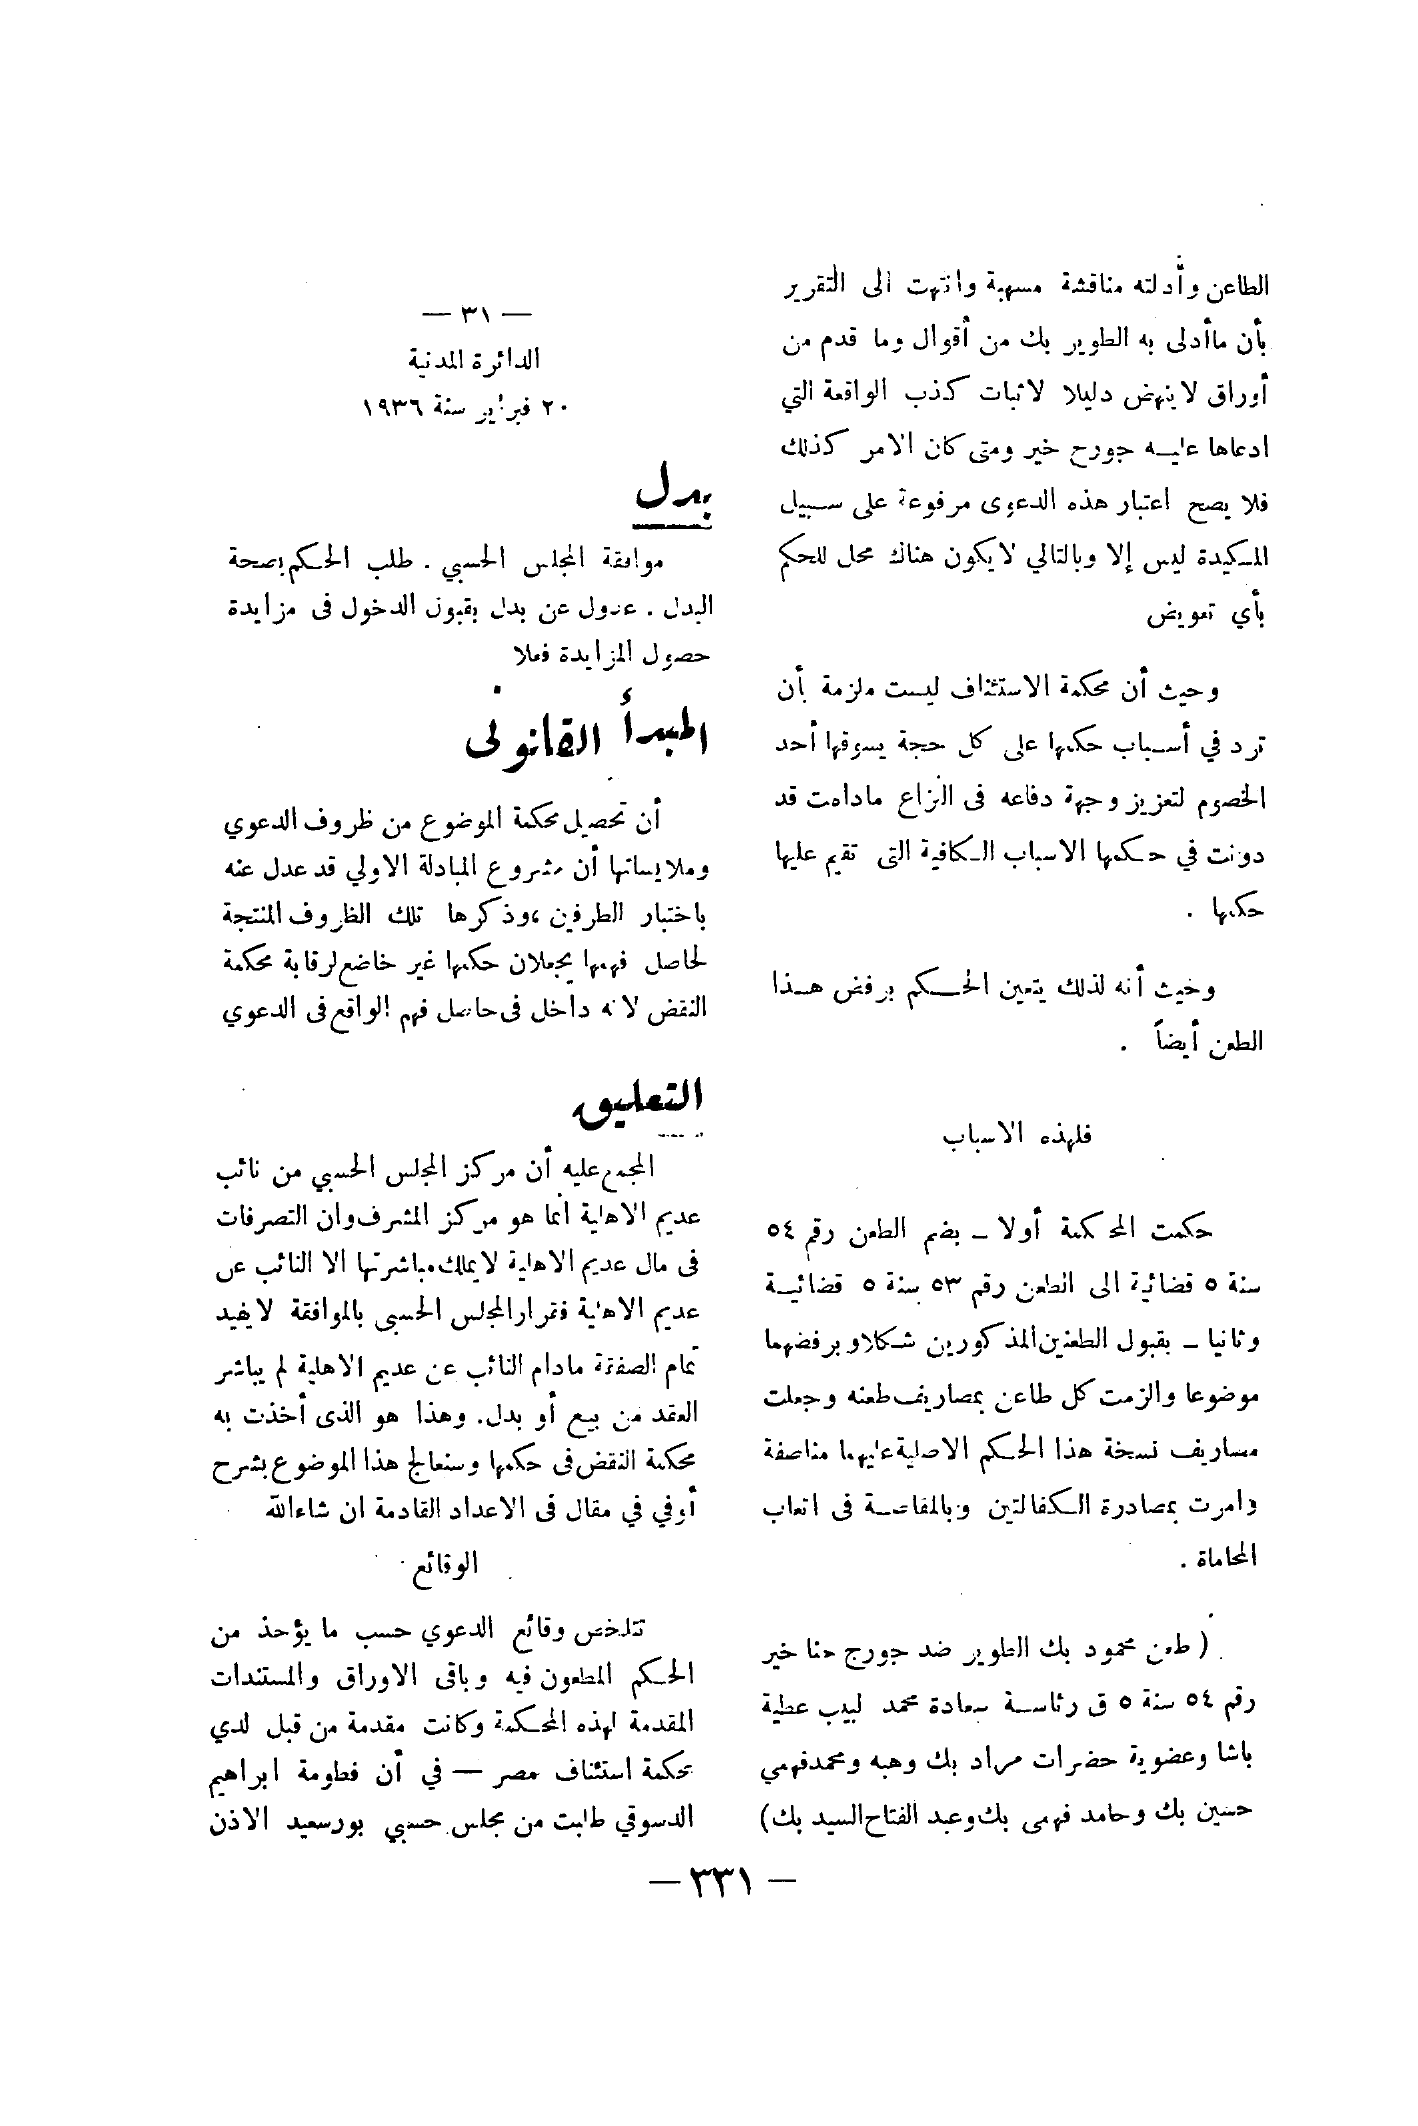 الطاعن وأدلته مناقشة مسهبة وانتهت الى التقرير
بأن ماأدلى به الطوير بك من أقوال وما قدم من
أوراق لاينهض دليلا لاثبات كذب الواقعة التي
ادعاها عليه جورج خير ومتى كان الامر كذلك
فلا يصح اعتبار هذه الدعوى مرفوعة على سبيل
المكيدة ليس إلا وبالتالي لايكون هناك محل للحكم
بأي تعويض
وحيث أن محكمة الاستئناف ليست ملزمة بأن
ترد في أسباب حكمها على كل حجة يسوقها أحد
الخصوم لتعزيز وجهة دفاعه فى النزاع مادامت قد
دونت في حكمها الاسباب الكافية التى تقيم عليها
حكمها .
وحيث أنه لذلك يتعين الحكم برفض هذا
الطعن أيضاً .
فلهذه الاسباب
حكمت المحكمة أولا ــ بضم الطعن رقم ٥٤
سنة ٥ قضائية الى الطعن رقم ٥٣ سنة ٥ قضائية
وثانيا ــ بقبول الطعنين المذكورين شكلا وبرفضهما
موضوعا والزمت كل طاعن بمصاريف طعنه وجعلت
مصاريف نسخة هذا الحكم الاصلية عليهما مناصفة
وأمرت بمصادرة الكفالتين وبالمقاصة فى اتعاب
المحاماة .
( طعن محمود بك الطوير ضد جورج حنا خير
رقم ٥٤ سنة ٥ ق رئاسة سعادة محمد لبيب عطية
باشا وعضوية حضرات مراد بك وهبه ومحمد فهمي
حسين بك وحامد فهمى بك وعبد الفتاح السيد بك)
— ٣١ —
الدائرة المدنية
٢٠ فبراير سنة ١٩٣٦
بدل
موافقة المجلس الحسبي . طلب الحكم بصحة
البدل . عدول عن بدل بقبول الدخول فى مزايدة
حصول المزايدة فعلا
المبدأ القانونى
أن تحصيل محكمة الموضوع من ظروف الدعوي
وملابساتها أن مشروع المبادلة الاولي قد عدل عنه
باختيار الطرفين ،وذكرها تلك الظروف المنتجة
لحاصل فهمها يجعلان حكمها غير خاضع لرقابة محكمة
النقض لانه داخل فى حاصل فهم الواقع فى الدعوي
التعليق
المجمع عليه أن مركز المجلس الحسبي من نائب
عديم الاهلية انما هو مركز المشرف وان التصرفات
فى مال عديم الاهلية لايملك مباشرتها الا النائب عن
عديم الاهلية فقرار المجلس الحسبى بالموافقة لايفيد
تمام الصفقة مادام النائب عن عديم الاهلية لم يباشر
العقد من بيع أو بدل. وهذا هو الذى أخذت به
محكمة النقض فى حكمها وسنعالج هذا الموضوع بشرح
أوفي في مقال فى الاعداد القادمة ان شاء الله
الوقائع
تتلخص وقائع الدعوي حسب ما يؤخذ من
الحكم المطعون فيه وباقى الاوراق والمستندات
المقدمة لهذه المحكمة وكانت مقدمة من قبل لدي
محكمة استئناف مصر — في أن فطومة ابراهيم
الدسوقي طلبت من مجلس حسبي بورسعيد الاذن
— ٣٣١ —